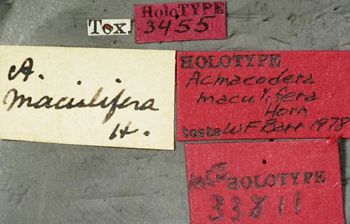 Tex.
HoloTYPE
3455
A.
maculifera
H.
HOLOTYPE
Acmaeodera
maculifera
Horn
teste WF Barr 1978
MCZ
HOLOTYPE
33811